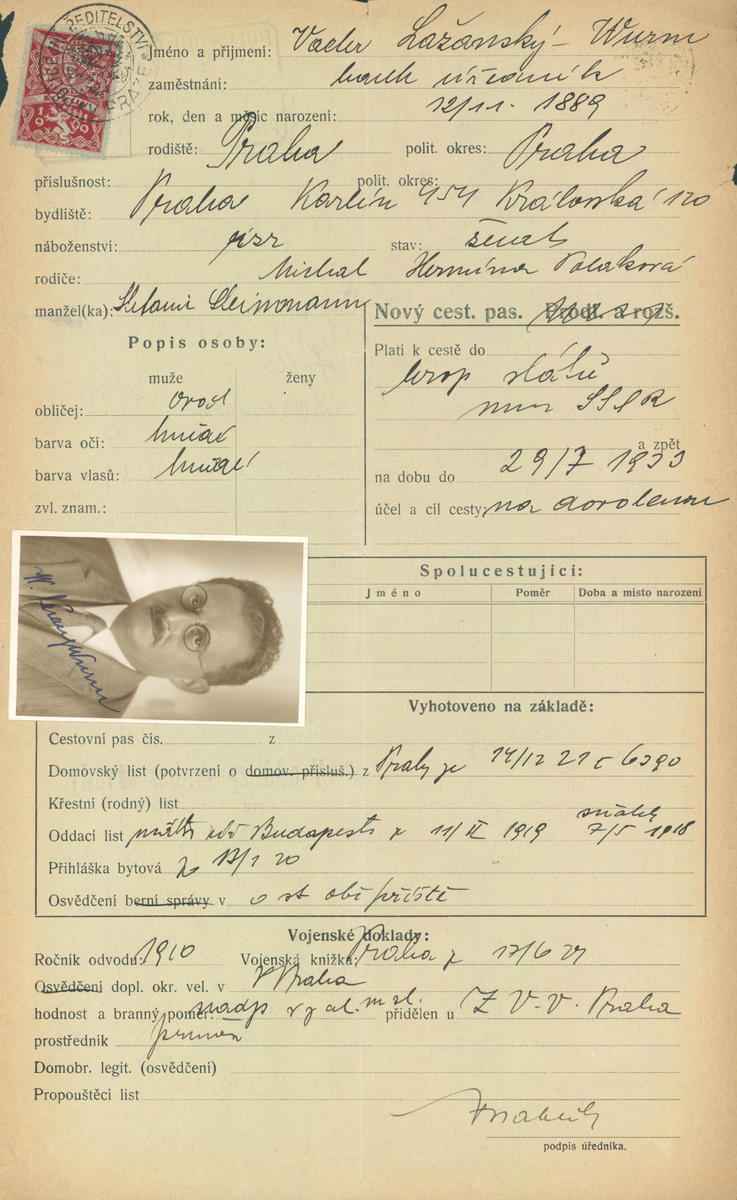 ŘEDITELSTVÍ
Jméno a příjmení: Lažanský-Wurm
zaměstnání: bank úředník
rok, den a měsíc narození: 12/11. 1889
rodiště: Praha polit. okres: Praha
příslušnost: polit. okres:
bydliště: Praha Karlín 454 Královská 120
náboženství: izr stav: ženat
rodiče: Michal Hermina Polaková
manžel(ka):
Nový cest. pas. Prodl. a rozš.
Popis osoby:
Platí k cestě do
muže ženy
evrop států
obličej: oval
mim SSSR
barva očí: hnědé
a zpět
barva vlasů: hnědé
na dobu do 29/7 1933
zvl. znam.:
účel a cíl cesty: na dovolenou
Spolucestující:
Jméno Poměr Doba a místo narození
Vyhotoveno na základě:
Cestovní pas čís. z
Domovský list (potvrzení o domov. přísluš.) z Prahy ze 14/12 21 č 6390
Křestní (rodný) list
sňatek
Oddací list Budapest z 11/II 1919 7/5 1918
Přihláška bytová ze 13/1 20
Osvědčení berní správy v o st obč příště
Vojenské doklady:
Ročník odvodu: 1910 Vojenská knížka: Praha z 17/6 21
Osvědčení dopl. okr. vel. v Praha
hodnost a branný poměr: přidělen u Z. V. V. Praha
prostředník
Domobr. legit. (osvědčení)
Propouštěcí list
podpis úředníka.